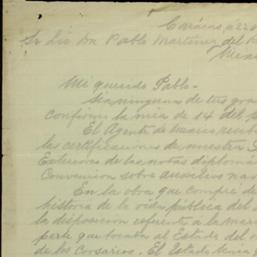 Carácas 22
Sr Lic Dn Pablo Martínez del R
Mi querido Pablo-
Sin ninguna de tus gra
confirmo la mia de 14 del p
El Agente de
las certificaciones de nuestro S
Exteriores de las notas diplomá
Convencion sobre auxilios na
En la obra que compré de
historia de la vida pública del
la disposicion referente á la mar
parte que tocaba al Estado del
de los Corsarios. El Estado tenia